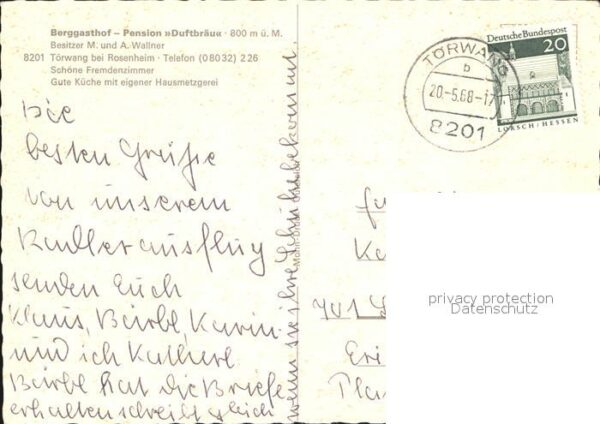 Berggasthof – Pension »Duftbräu« · 800 m ü. M.
Besitzer M. und A. Wallner
8201 Törwang bei Rosenheim · Telefon (08032) 226
Schöne Fremdenzimmer
Gute Küche mit eigener Hausmetzgerei
Die
besten Grüße
von unserem
senden Euch
Klaus, Bärbl, Karin
und ich
Bärbl hat die Briefe
erhalten schreibt gleich
wenn sie ihre Schuhe bekommt.
TÖRWANG
b
20-5.68-17
8201
Deutsche Bundespost
20
LORSCH/HESSEN
701
privacy protection
Datenschutz